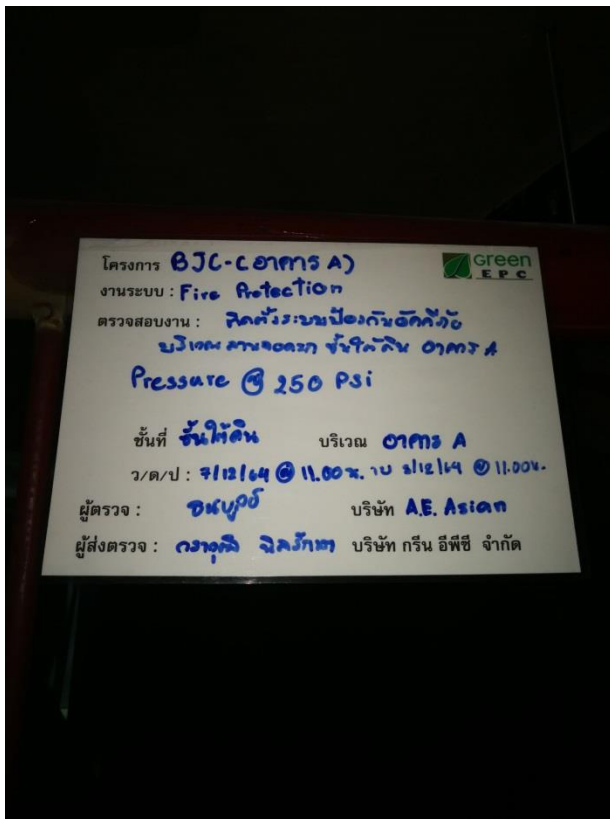 Green
EPC
โครงการ BJC-(อาคาร A)
งานระบบ : Fire Protection
ตรวจสอบงาน : ติดตั้งระบบป้องกันอัคคีภัย
บริเวณลานจอดรถ ชั้นใต้ดิน อาคาร A
Pressure @ 250 PSi
ชั้นที่ ชั้นใต้ดิน บริเวณ อาคาร A
ว/ด/ป : 7/12/64 @ 11.00 น. /12/64 @ 11.00น.
ผู้ตรวจ : บริษัท A.E. Asian
ผู้ส่งตรวจ : บริษัท กรีน อีพีซี จำกัด